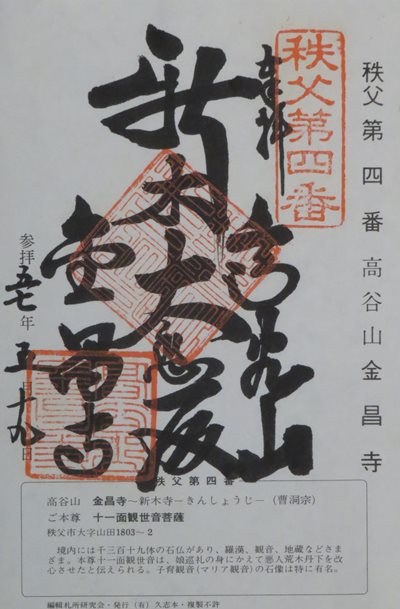 秩父第四番 高谷山金昌寺
秩父第四番
奉拝
新木大悲殿
高谷山
金昌寺
参拝 五七年 五月十九日
秩父第四番
高谷山 金昌寺～新木寺－きんしょうじ－（曹洞宗）
ご本尊 十一面観世音菩薩
秩父市大字山田1803～2
境内には千三百十九体の石仏があり、羅漢、観音、地蔵などさま
ざま。本尊十一面観世音は、娘巡礼の身にかえて悪人荒木丹下を改
心させたと伝えられる。子育観音(マリア観音)の石像は特に有名。
編輯札所研究会・発行（有）久志本・複製不許